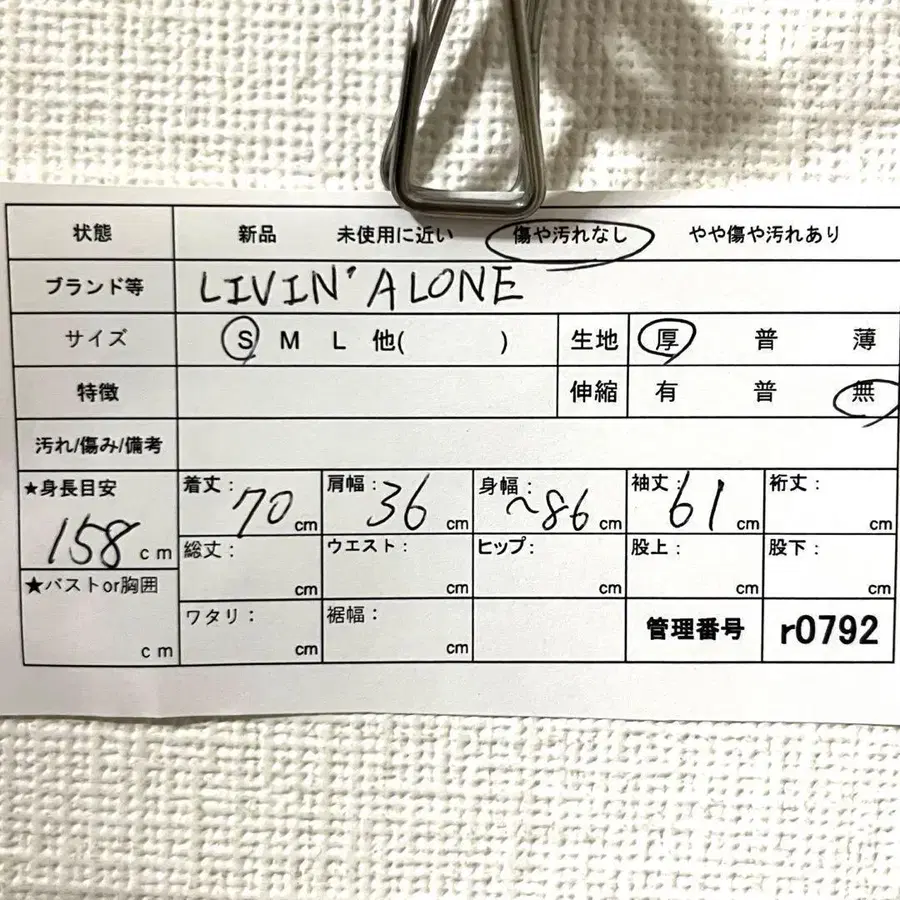 状態 新品 未使用に近い 傷や汚れなし やや傷や汚れあり
ブランド等 LIVIN' ALONE
サイズ S M L 他( ) 生地 厚 普 薄
特徴 伸縮 有 普 無
汚れ/傷み/備考
★身長目安 158 cm
着丈: 70 cm 肩幅: 36 cm 身幅: ~86 cm 袖丈: 61 cm 裄丈: cm
総丈: cm ウエスト: cm ヒップ: cm 股上: cm 股下: cm
★バストor胸囲 cm
ワタリ: cm 裾幅: cm 管理番号 r0792